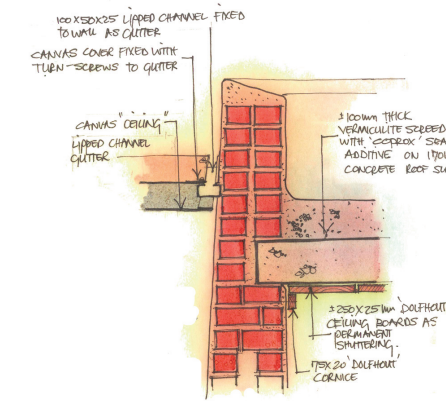 100x50x25 LIPPED CHANNEL FIXED
TO WALL AS GUTTER
CANVAS COVER FIXED WITH
TURN-SCREWS TO GUTTER
CANVAS "CEILING"
LIPPED CHANNEL
GUTTER
±100mm THICK
VERMICULITE SCREED
WITH 'COPROX' SEA
ADDITIVE ON
CONCRETE ROOF SL
±250x25mm 'DOLFHOUT'
CEILING BOARDS AS
PERMANENT
SHUTTERING.
75x20 'DOLFHOUT'
CORNICE